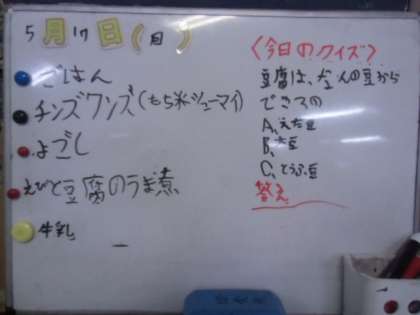 5月17日(月)
ごはん
チンズワンズ(もち米シューマイ)
よごし
えびと豆腐のうま煮
牛乳
<今日のクイズ>
豆腐は、なんの豆から
できてるの
A、えだ豆
B、大豆
C、とうふ豆
答え